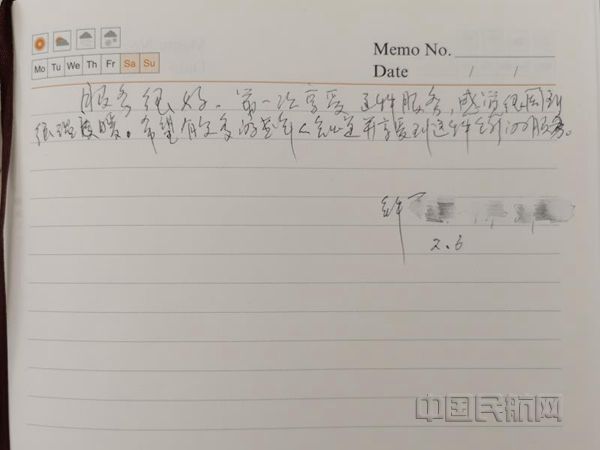 Memo No.
Date / /
Mo Tu We Th Fr Sa Su
服务很好。第一次享受这种服务,感觉很周到
很温暖。希望有更多的 人 享受到这种 的服务。
2.6
中国民航网